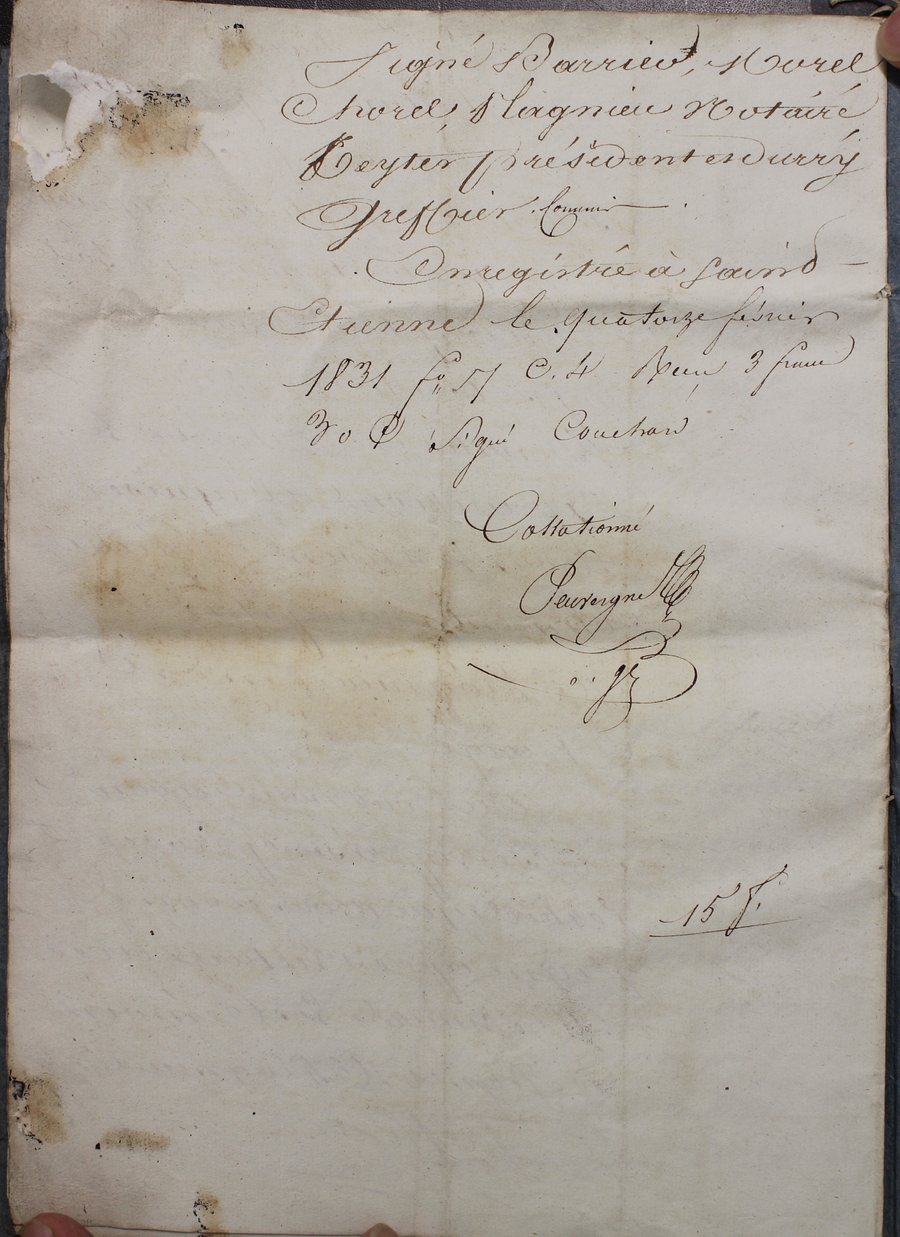 Signé Barrieu, Morel
Chorel Plagnieu Notaire
Teyter président et Durry
Greffier Commis
Enregistré à Saint
Etienne le quatorze février
1831 f° 57 C. 4 Recu 3 franc
30 C Signé Couchard
Collationné
Peuvergne
15 f.